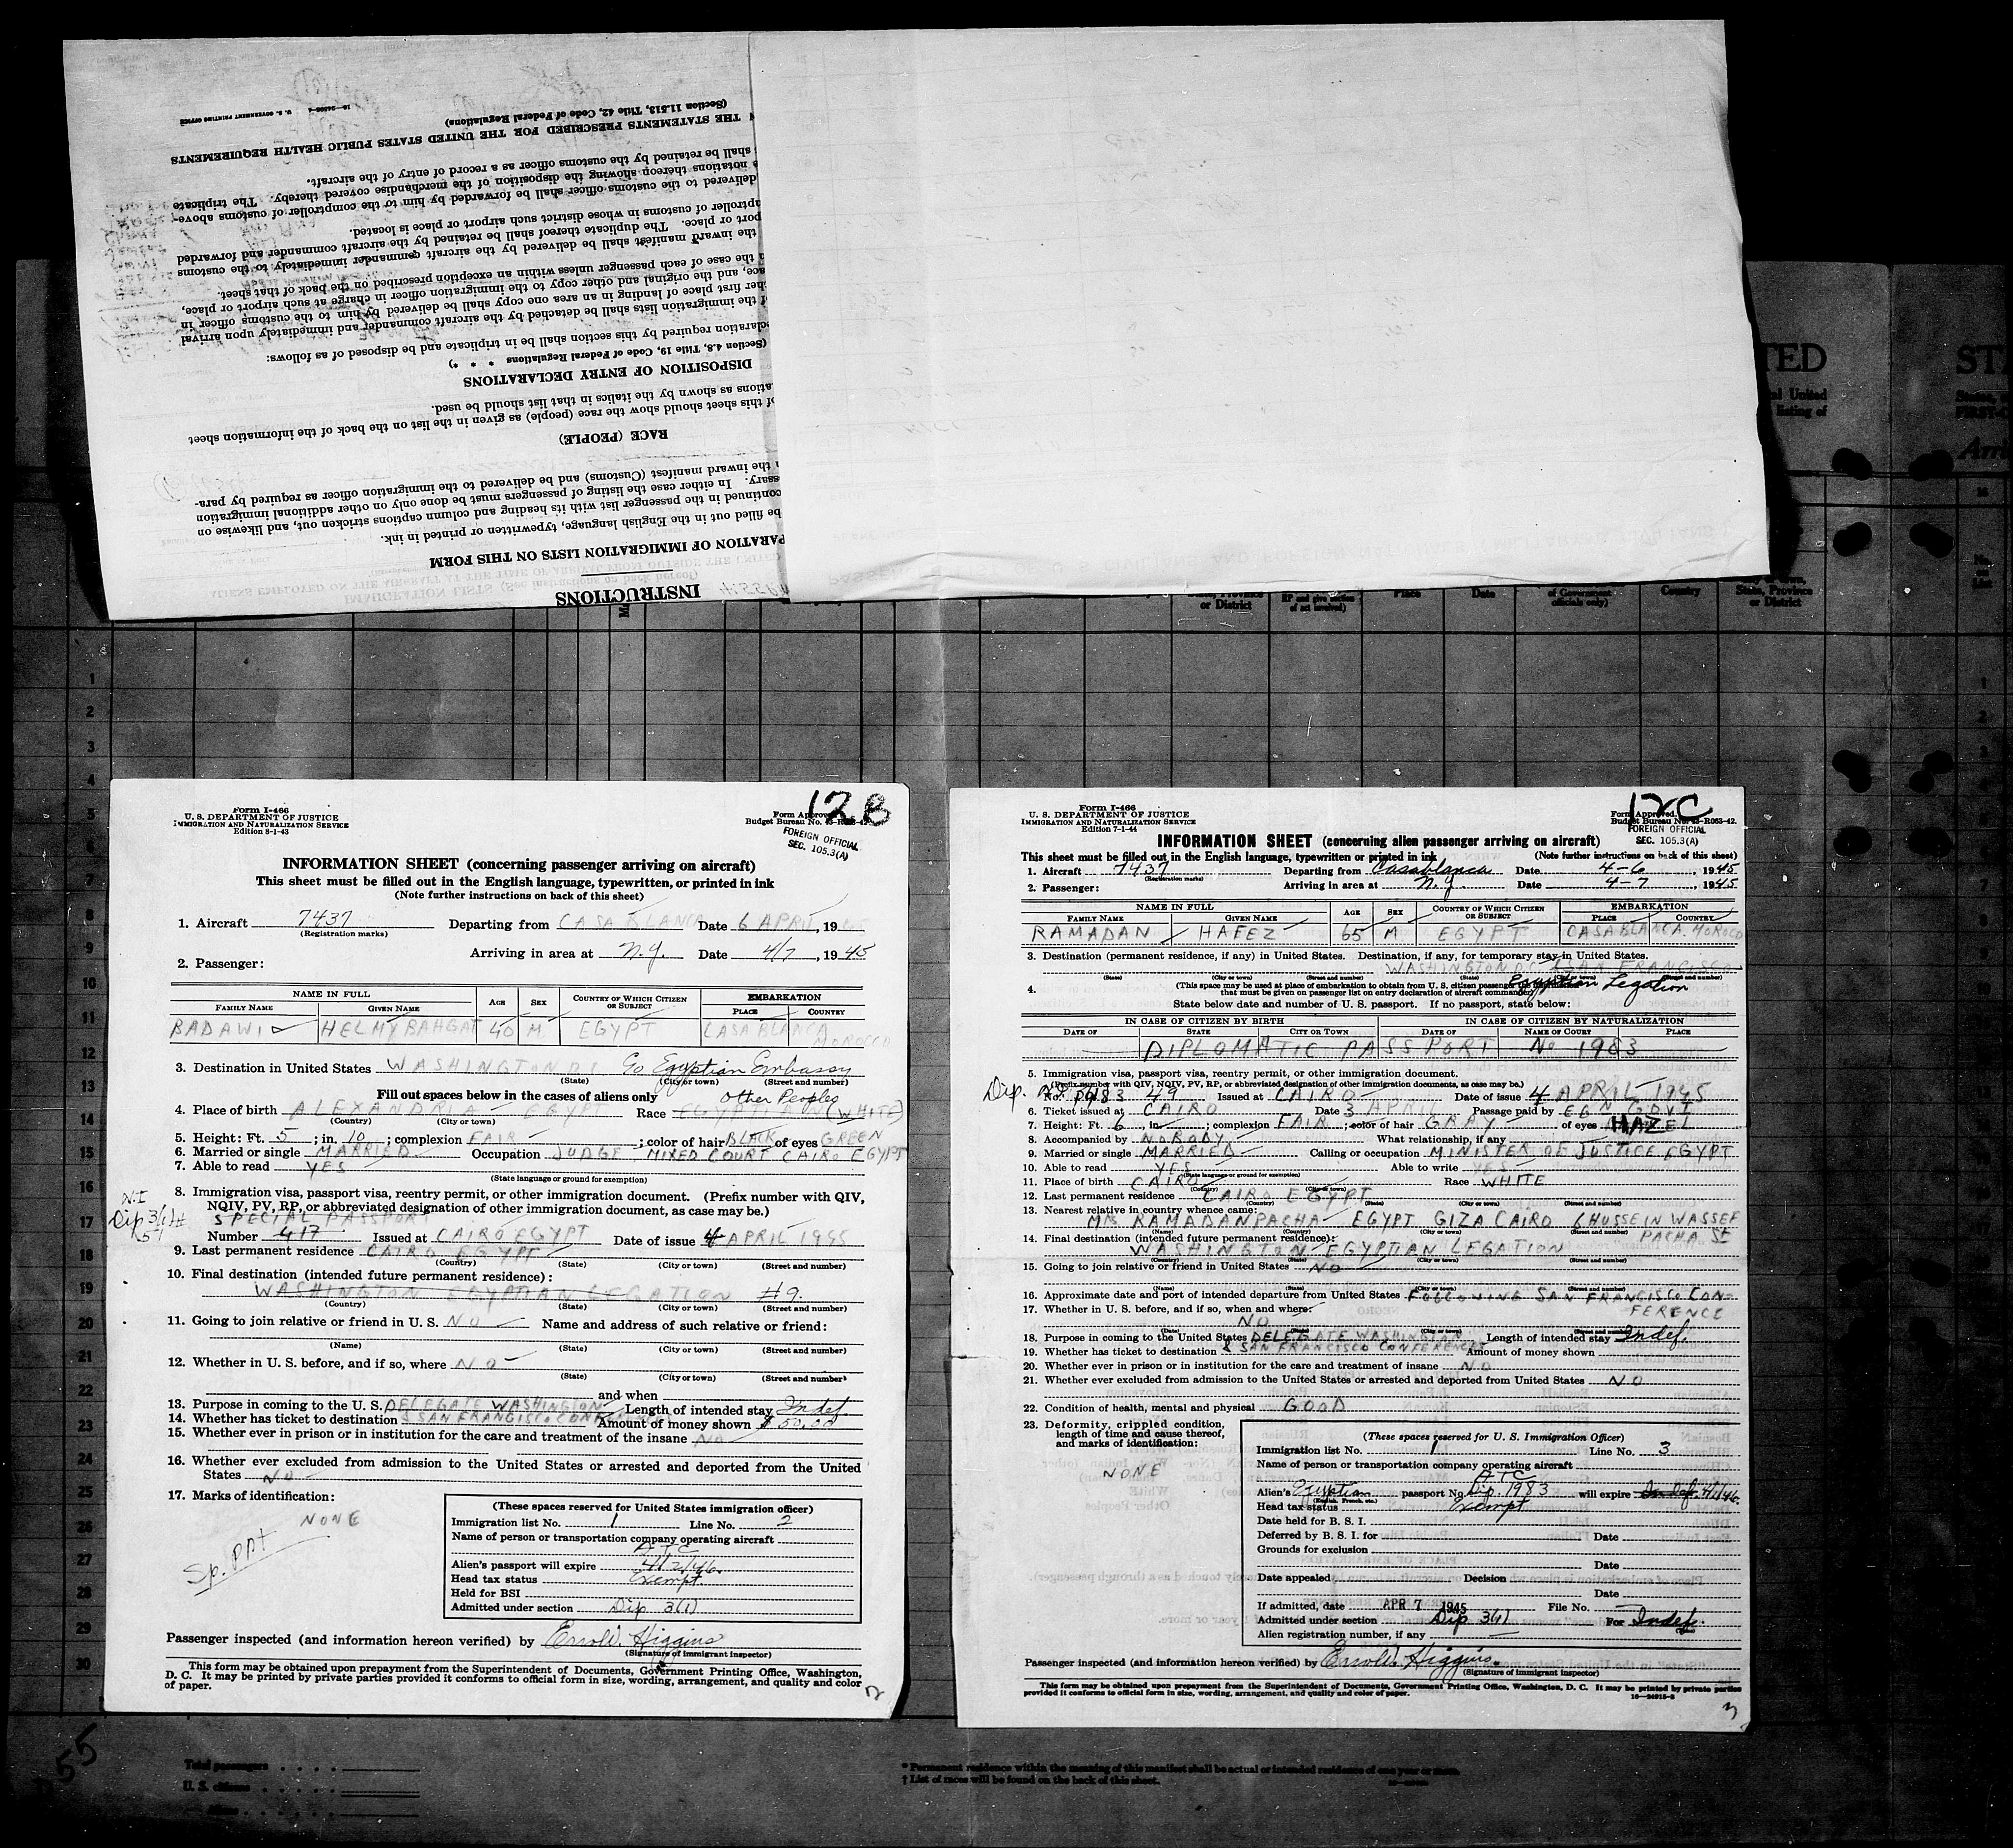 16—24908-4 U. S. GOVERNMENT PRINTING OFFICE
(Section 11.513, Title 42, Code of Federal Regulations)
THE STATEMENTS PRESCRIBED FOR THE UNITED STATES PUBLIC HEALTH REQUIREMENTS
shall be retained by the customs officer as a record of entry of the aircraft.
notations thereon showing the disposition of the merchandise covered thereby. The triplicate
delivered to the customs officer shall be forwarded by him to the comptroller of customs above-
ptroller of customs in whose district such airport or place is located.
port or place. The duplicate thereof shall be retained by the aircraft commander and forwarded
the inward manifest shall be delivered by the aircraft commander immediately to the customs
n the case of each passenger unless within an exception prescribed on the back of that sheet.
ace, and the original and other copy to the immigration officer in charge at such airport or place,
her first place of landing in an area one copy shall be delivered by him to the customs officer in
of the immigration lists shall be detached by the aircraft commander and immediately upon arrival
claration required by this section shall be in triplicate and be disposed of as follows:
(Section 4.8, Title 19, Code of Federal Regulations * * *)
DISPOSITION OF ENTRY DECLARATIONS
ations as shown by the italics in that list should be used.
of this sheet should show the race (people) as given in the list on the back of the information sheet
RACE (PEOPLE)
the inward manifest (Customs) and be delivered to the immigration officer as required by para-
ssary. In either case the listing of passengers must be done only on other additional immigration
continued in the passenger list with its heading and column captions stricken out, and likewise on
be filled out in the English language, typewritten or printed in ink.
PARATION OF IMMIGRATION LISTS ON THIS FORM
INSTRUCTIONS
TED
STA
State, Province or District
Place
Date
of Government officials only)
Country
State, Province or District
12B
Form I-466
U. S. DEPARTMENT OF JUSTICE
IMMIGRATION AND NATURALIZATION SERVICE
Edition 8-1-43
Form Approved.
Budget Bureau No. 43-R063-42.
FOREIGN OFFICIAL
SEC. 105.3(A)
INFORMATION SHEET (concerning passenger arriving on aircraft)
This sheet must be filled out in the English language, typewritten, or printed in ink
(Note further instructions on back of this sheet)
1. Aircraft 7437 Departing from CASABLANCA Date 6 APRIL, 19
(Registration marks)
Arriving in area at N.Y. Date 4/7, 19 45
2. Passenger:
NAME IN FULL AGE SEX COUNTRY OF WHICH CITIZEN OR SUBJECT EMBARKATION
FAMILY NAME GIVEN NAME PLACE COUNTRY
BADAWI HELMY BAHGAT 40 M EGYPT CASABLANCA MOROCCO
3. Destination in United States WASHINGTON DC Co Egyptian Embassy
(State) (City or town) (Street and number)
Fill out spaces below in the cases of aliens only Other Peoples
4. Place of birth ALEXANDRIA - EGYPT Race EGYPTIEN (WHITE)
(Country) (City or town)
5. Height: Ft. 5; in. 10; complexion FAIR; color of hair BLACK of eyes GREEN
6. Married or single MARRIED Occupation JUDGE MIXED COURT CAIRO EGYPT
7. Able to read YES
(State language or ground for exemption)
8. Immigration visa, passport visa, reentry permit, or other immigration document. (Prefix number with QIV,
NQIV, PV, RP, or abbreviated designation of other immigration document, as case may be.)
N.I
Dip 3(1) #
51
SPECIAL PASSPORT
Number 417 Issued at CAIRO EGYPT Date of issue 4 APRIL 1945
9. Last permanent residence CAIRO EGYPT
(Country) (State) (City or town) (Street and number)
10. Final destination (intended future permanent residence):
WASHINGTON EGYPTIAN LEGATION #9.
(Country) (State) (City or town) (Street and number)
11. Going to join relative or friend in U. S. NO Name and address of such relative or friend:
(Name) (State) (City or town) (Street and number)
12. Whether in U. S. before, and if so, where NO
(State) (City or town) (Street and number)
and when
13. Purpose in coming to the U. S. DELEGATE WASHINGTON Length of intended stay Indef.
14. Whether has ticket to destination & SAN FRANCISCO CONFERENCES Amount of money shown $50.00
15. Whether ever in prison or in institution for the care and treatment of the insane NO
16. Whether ever excluded from admission to the United States or arrested and deported from the United
States NO
17. Marks of identification:
NONE
Sp. PPt
(These spaces reserved for United States immigration officer)
Immigration list No. 1 Line No. 2
Name of person or transportation company operating aircraft
ATC
Alien's passport will expire 4/2/46.
Head tax status Exempt.
Held for BSI
Admitted under section Dip 3(1)
Passenger inspected (and information hereon verified) by Errol W. Higgins
(Signature of immigrant inspector)
This form may be obtained upon prepayment from the Superintendent of Documents, Government Printing Office, Washington,
D. C. It may be printed by private parties provided it conforms to official form in size, wording, arrangement, and quality and color
of paper.
2
12C
Form I-466
U. S. DEPARTMENT OF JUSTICE
IMMIGRATION AND NATURALIZATION SERVICE
Edition 7-1-44
Form Approved.
Budget Bureau No. 43-R063-42.
FOREIGN OFFICIAL
SEC. 105.3(A)
INFORMATION SHEET (concerning alien passenger arriving on aircraft)
This sheet must be filled out in the English language, typewritten or printed in ink (Note further instructions on back of this sheet)
1. Aircraft 7437 Departing from Casablanca Date 4-6, 1945
(Registration marks)
2. Passenger: Arriving in area at N.Y. Date 4-7, 1945
NAME IN FULL AGE SEX COUNTRY OF WHICH CITIZEN OR SUBJECT EMBARKATION
FAMILY NAME GIVEN NAME PLACE COUNTRY
RAMADAN HAFEZ 65 M EGYPT CASABLANCA. MOROCO
3. Destination (permanent residence, if any) in United States. Destination, if any, for temporary stay in United States.
WASHINGTON DC & SAN FRANCISCO
(State) (City or town) (Street and number) (State) (City or town) (Street and number)
Egyptian Legation
4. (This space may be used at place of embarkation to obtain from U. S. citizen passenger
that must be given on passenger list on entry declaration of aircraft commander)
State below date and number of U. S. passport. If no passport, state below:
IN CASE OF CITIZEN BY BIRTH IN CASE OF CITIZEN BY NATURALIZATION
DATE OF STATE CITY OR TOWN DATE OF NAME OF COURT PLACE
DIPLOMATIC PASSPORT No 1983
5. Immigration visa, passport visa, reentry permit, or other immigration document.
(Prefix number with QIV, NQIV, PV, RP, or abbreviated designation of other immigration documents, as case may be.)
Dip. No. 1983 49 Issued at CAIRO Date of issue 4 APRIL 1945
6. Ticket issued at CAIRO Date 3 APRIL Passage paid by EGN GOVT
7. Height: Ft. 6, in.; complexion FAIR; color of hair GRAY of eyes HAZEL
8. Accompanied by NOBODY What relationship, if any
9. Married or single MARRIED Calling or occupation MINISTER OF JUSTICE EGYPT
10. Able to read YES Able to write YES
(State language or ground for exemption)
11. Place of birth CAIRO Race WHITE
(Country) (City or town)
12. Last permanent residence CAIRO EGYPT
(Country) (State) (City or town) (Street and number)
13. Nearest relative in country whence came:
MRS RAMADAN PACHA EGYPT GIZA CAIRO 6 HUSSEIN WASSEF PACHA St
(Name) (Country) (City or town) (Street and number)
14. Final destination (intended future permanent residence):
WASHINGTON EGYPTIAN LEGATION
(Country) (State) (City or town) (Street and number)
15. Going to join relative or friend in United States NO
(Name) (State) (City or town) (Street and number)
16. Approximate date and port of intended departure from United States FOLLOWING SAN FRANCISCO CONFERENCE
17. Whether in U. S. before, and if so, when and where:
NO
(Date) (State) (City or town) (Street and number)
18. Purpose in coming to the United States DELEGATE WASHINGTON Length of intended stay Indef.
19. Whether has ticket to destination & SAN FRANCISCO CONFERENCES Amount of money shown
20. Whether ever in prison or in institution for the care and treatment of insane NO
21. Whether ever excluded from admission to the United States or arrested and deported from United States NO
22. Condition of health, mental and physical GOOD
23. Deformity, crippled condition,
length of time and cause thereof,
and marks of identification:
NONE
(These spaces reserved for U. S. Immigration Officer)
Immigration list No. 1 Line No. 3
Name of person or transportation company operating aircraft
ATC
Alien's Egyptian passport No. Dip. 1983 will expire Indef. 4/1/46.
(English, French, etc.)
Head tax status Exempt
Date held for B. S. I.
Deferred by B. S. I. for Date
Grounds for exclusion
Date
Date appealed Decision
Date
If admitted, date APR 7 1945 File No.
Admitted under section Dip 3(1) For Indef.
Alien registration number, if any
Passenger inspected (and information hereon verified) by Errol W. Higgins.
(Signature of immigrant inspector)
This form may be obtained upon prepayment from the Superintendent of Documents, Government Printing Office, Washington, D. C. It may be printed by private parties
provided it conforms to official form in size, wording, arrangement, and quality and color of paper.
16—24915-2
3
55
Total passengers
U. S. citizens
Aliens
* Permanent residence within the meaning of this manifest shall be actual or intended residence of one year or more.
† List of races will be found on the back of this sheet.